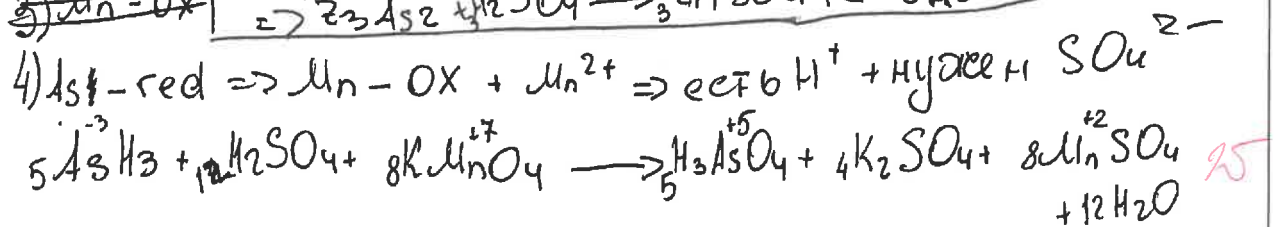 3) Mn - OX
=> Z3As2 + H2SO4 → 3
4) As - red => Mn - OX + Mn²⁺ => есть H⁺ + нужен SO4²⁻
5As⁻³H3 + 12H2SO4 + 8KMn⁺⁷O4 → 5H3As⁺⁵O4 + 4K2SO4 + 8Mn⁺²SO4 25
+ 12H2O